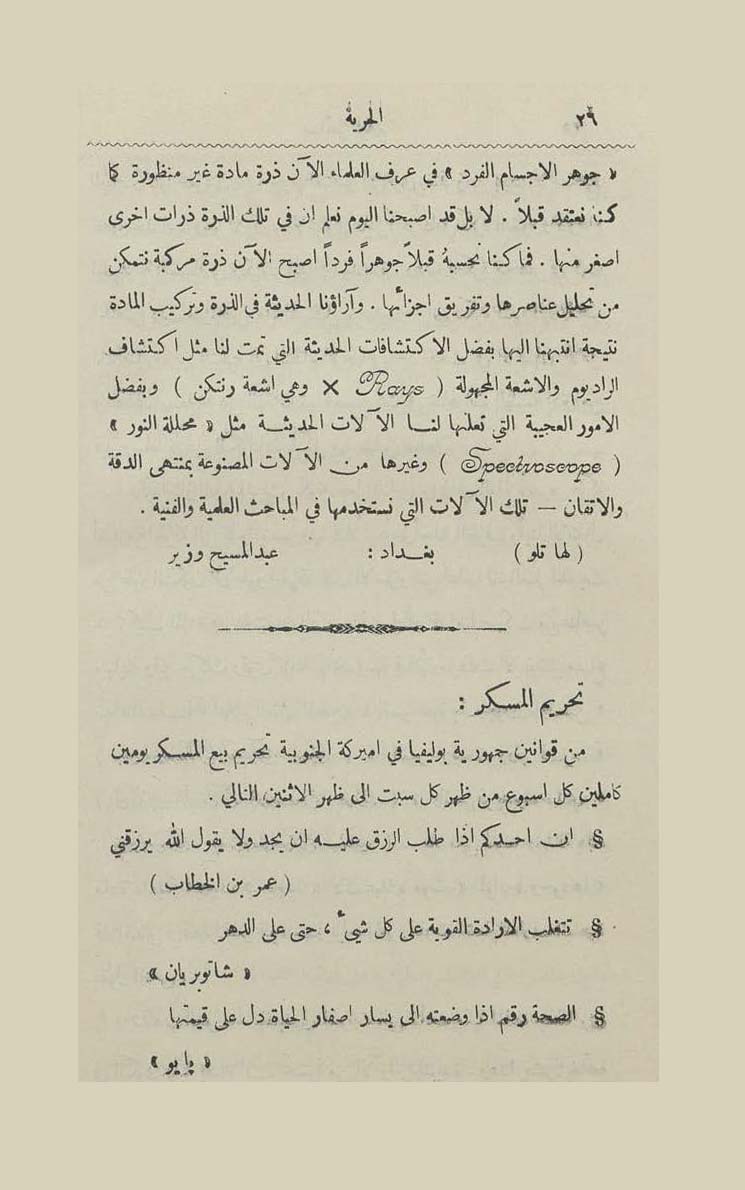 ٢٩ الحرية
« جوهر الاجسام الفرد » في عرف العلماء الآن ذرة مادة غير منظورة كما
كنا نعتقد قبلاً . لا بل قد اصبحنا اليوم نعلم ان في تلك الذرة ذرات اخرى
اصغر منها . فما كنا نحسبه قبلاً جوهراً فرداً اصبح الآن ذرة مركبة نتمكن
من تحليل عناصرها وتفريق اجزائها . وآراؤنا الحديثة في الذرة وتركيب المادة
نتيجة انتبهنا اليها بفضل الاكتشافات الحديثة التي تمت لنا مثل اكتشاف
الراديوم والاشعة المجهولة ( Rays X وهي اشعة رنتكن ) وبفضل
الامور العجيبة التي تعلنها لنا الآلات الحديثة مثل « محللة النور »
( Spectroscope ) وغيرها من الآلات المصنوعة بمنتهى الدقة
والاتقان — تلك الآلات التي نستخدمها في المباحث العلمية والفنية .
( لها تلو ) بغداد : عبدالمسيح وزير
تحريم المسكر :
من قوانين جمهورية بوليفيا في اميركة الجنوبية تحريم بيع المسكر يومين
كاملين كل اسبوع من ظهر كل سبت الى ظهر الاثنين التالي .
§ ان احدكم اذا طلب الرزق عليه ان يجد ولا يقول الله يرزقني
( عمر بن الخطاب )
§ تتغلب الارادة القوية على كل شيء ، حتى على الدهر
« شاتوبريان »
§ الصحة رقم اذا وضعته الى يسار اصفار الحياة دل على قيمتها
« پايو »